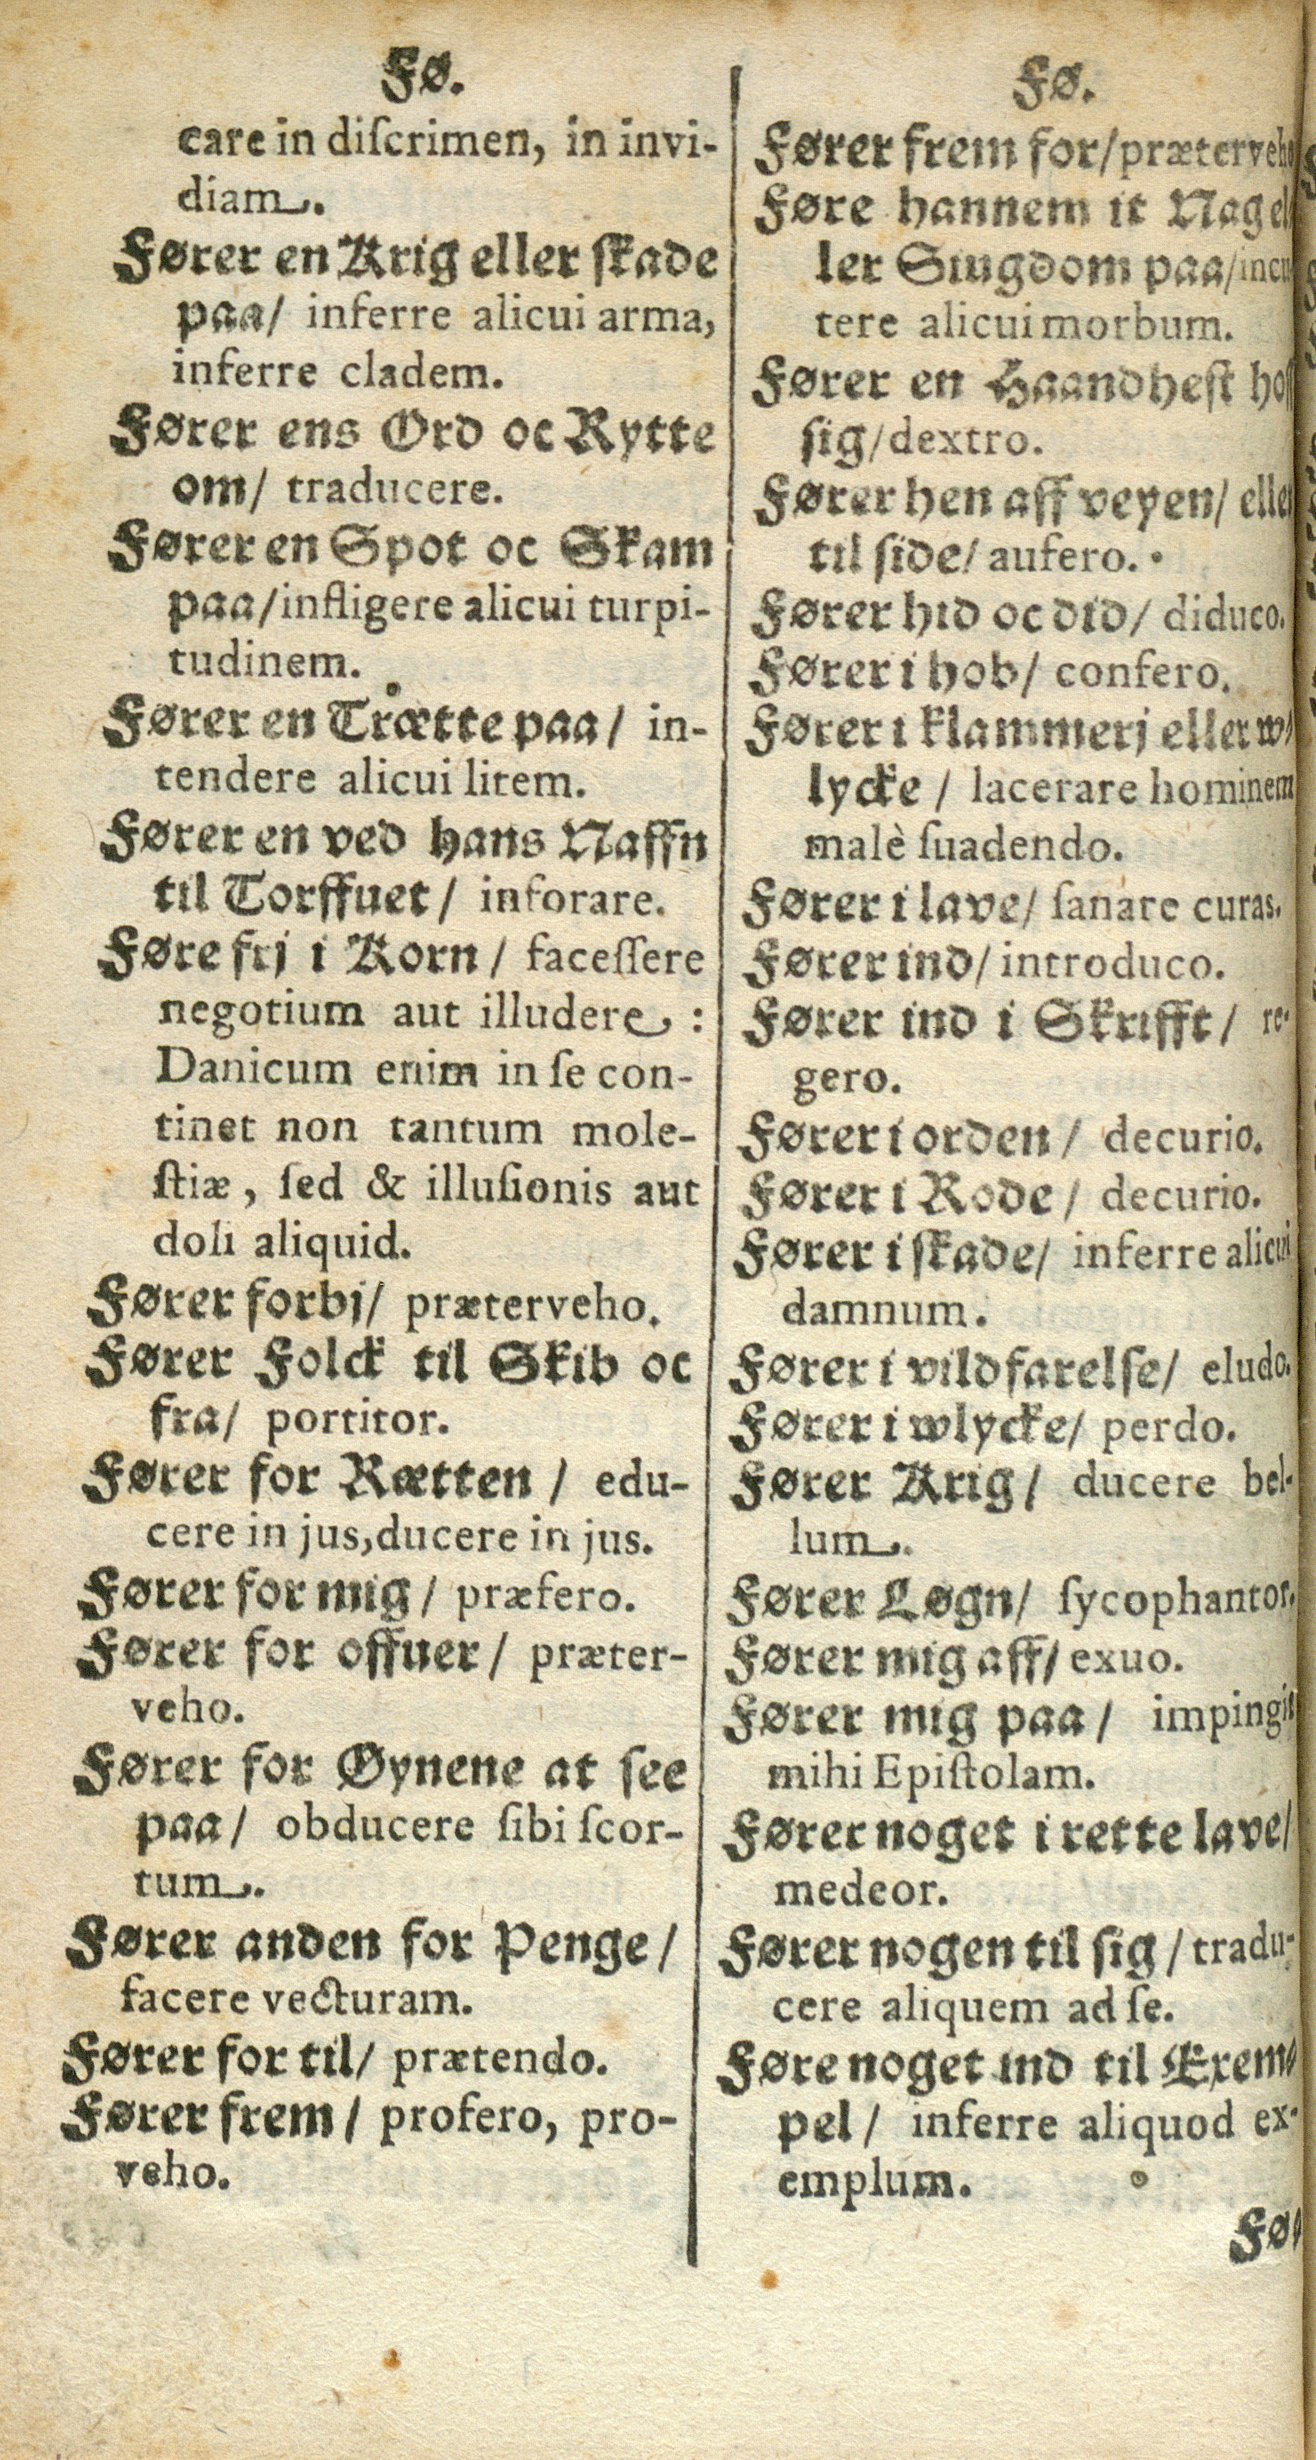 Fø.
care in diſcrimen, in invi-
diam.
Fører en Krig eller ſkade
paa/ inferre alicui arma,
inferre cladem.
Fører ens Ord oc Rytte
om/ traducere.
Fører en Spot oc Skam
paa/ infligere alicui turpi-
tudinem.
Fører en Trætte paa/ in-
tendere alicui litem.
Fører en ved hans Naffn
til Torffuet/ inforare.
Føre frj i Korn/ faceſſere
negotium aut illudere :
Danicum enim in ſe con-
tinet non tantum mole-
ſtiæ, ſed & illuſionis aut
doli aliquid.
Fører forbj/ præterveho.
Fører Folck til Skib oc
fra/ portitor.
Fører for Rætten/ edu-
cere in jus, ducere in jus.
Fører for mig/ præfero.
Fører for offuer/ præter-
veho.
Fører for Øynene at see
paa/ obducere ſibi ſcor-
tum.
Fører anden for Penge/
facere vecturam.
Fører for til/ prætendo.
Fører frem/ profero, pro-
veho.
Fø.
Fører frem for/ præterveho
Føre hannem it Nag el/
ler Siugdom paa/ incu
tere alicui morbum.
Fører en Haandheſt hoſſ
sig/ dextro.
Fører hen aff veyen/ eller
til ſide/ aufero.
Fører hid oc did/ diduco.
Fører i hob/ confero.
Fører i klammerj eller w/
lycke/ lacerare hominem
malè ſuadendo.
Fører i lave/ ſanare curas.
Fører ind/ introduco.
Fører ind i Skrifft/ re-
gero.
Fører i orden/ decurio.
Fører i Rode/ decurio.
Fører i ſkade/ inferre alicui
damnum.
Fører i vildfarelſe/ eludo.
Fører i wlycke/ perdo.
Fører Krig/ ducere bel-
lum.
Fører Løgn/ ſycophantor.
Fører mig aff/ exuo.
Fører mig paa/ impingit
mihi Epiſtolam.
Fører noget i rette lave/
medeor.
Fører nogen til sig/ tradu-
cere aliquem ad ſe.
Føre noget ind til Exem/
pel/ inferre aliquod ex-
emplum.
Fø/